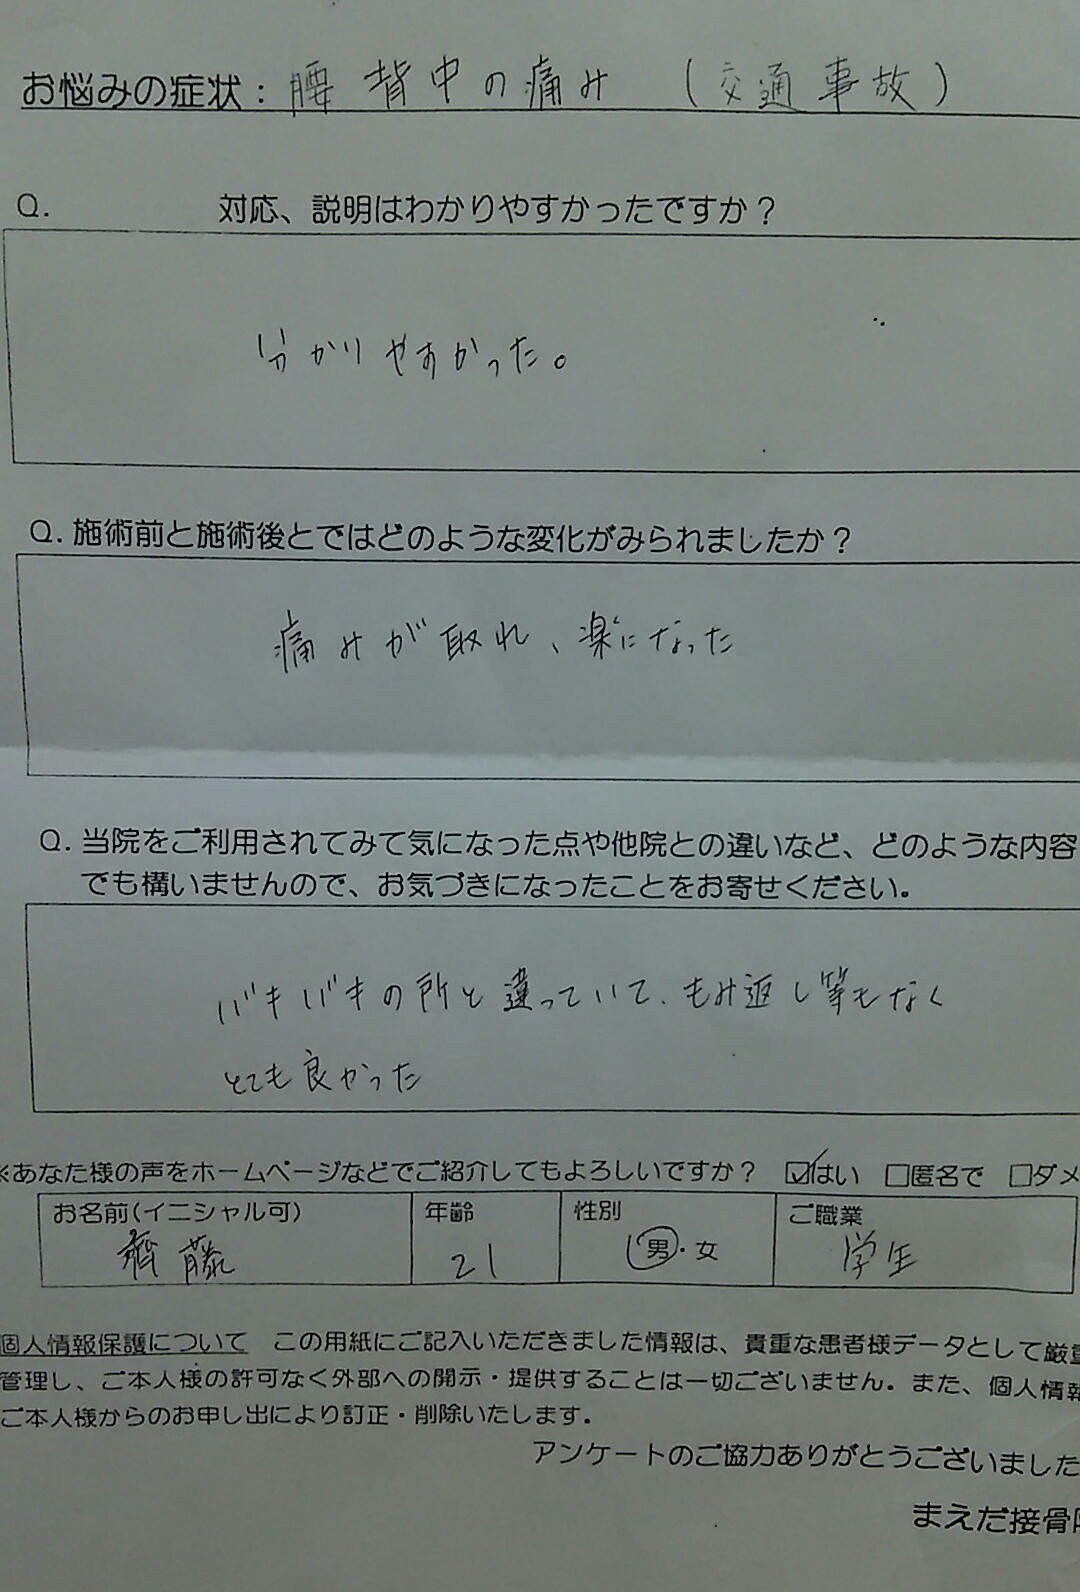 お悩みの症状：腰 背中の痛み （交通事故）
Q. 対応、説明はわかりやすかったですか？
分かりやすかった。
Q. 施術前と施術後とではどのような変化がみられましたか？
痛みが取れ、楽になった
Q. 当院をご利用されてみて気になった点や他院との違いなど、どのような内容
でも構いませんので、お気づきになったことをお寄せください。
バキバキの所と違っていて、もみ返し等もなく
とても良かった
※あなた様の声をホームページなどでご紹介してもよろしいですか？ ☑はい □匿名で □ダメ
お名前(イニシャル可) 年齢 性別 ご職業
齊藤 21 男・女 学生
個人情報保護について この用紙にご記入いただきました情報は、貴重な患者様データとして厳重
管理し、ご本人様の許可なく外部への開示・提供することは一切ございません。また、個人情報
ご本人様からのお申し出により訂正・削除いたします。
アンケートのご協力ありがとうございました
まえだ接骨